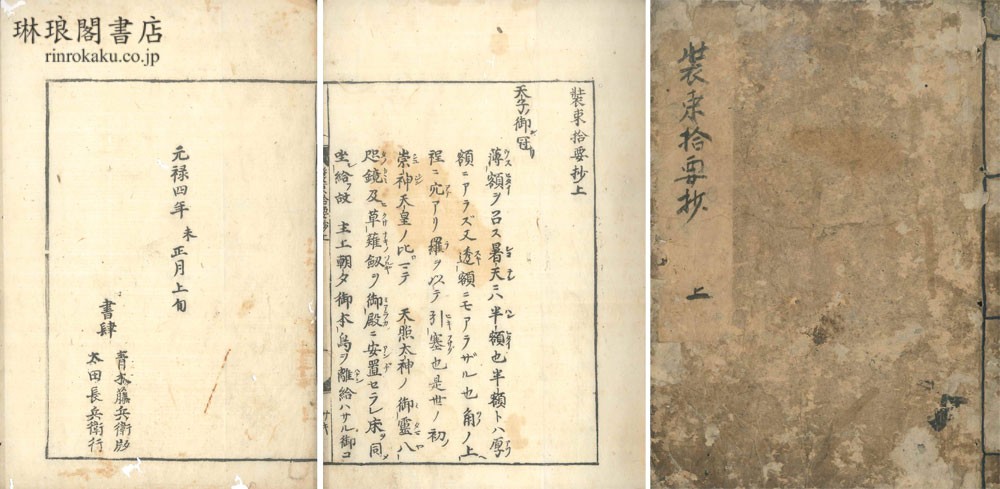 琳琅閣書店
rinrokaku.co.jp
元禄四年未正月上旬
書肆
青木藤兵衛彫
太田長兵衛行
裝束拾要抄上
天子ノ御冠
薄額ヲ召ス暑天ニハ半額也半額トハ厚
額ニアラズ又透額ニモアラザル也角ノ上
程ニ穴アリ羅ヲ以テ引塞也是世ノ初
崇神天皇ノ比マテ 天照太神ノ御霊八
咫鏡及草薙釼ヲ御殿ニ安置セラレ床ヲ同
坐給フ故 主上朝夕御本鳥ヲ離給ハサル御コ
裝束拾要抄
上